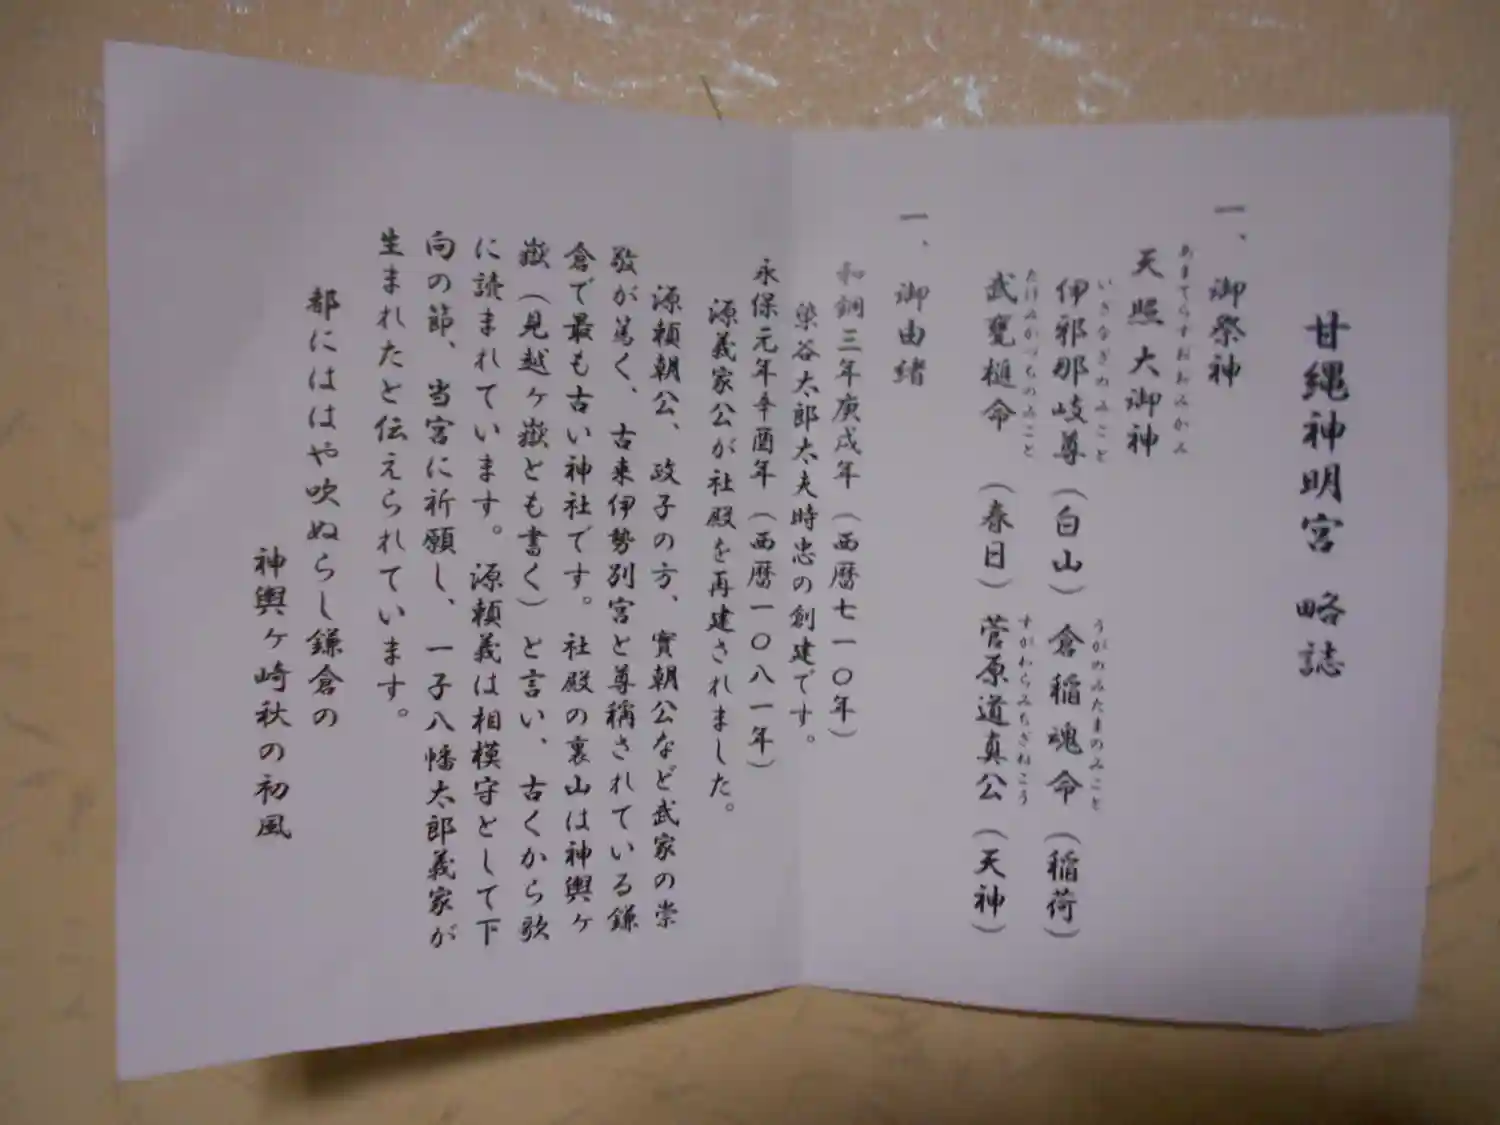 甘縄神明宮 略誌
一、御祭神
あまてらすおおみかみ
天照大御神
いざなぎのみこと うがのみたまのみこと
伊邪那岐尊(白山)倉稲魂命(稲荷)
たけみかづちのみこと すがわらみちざねこう
武甕槌命 (春日)菅原道真公(天神)
一、御由緒
和銅三年庚戌年(西暦七一〇年)
染谷太郎太夫時忠の創建です。
永保元年辛酉年(西暦一〇八一年)
源義家公が社殿を再建されました。
源頼朝公、政子の方、實朝公など武家の崇
敬が篤く、古来伊勢別宮と尊稱されている鎌
倉で最も古い神社です。社殿の裏山は神輿ヶ
嶽(見越ヶ嶽とも書く)と言い、古くから歌
に読まれています。源頼義は相模守として下
向の節、当宮に祈願し、一子八幡太郎義家が
生まれたと伝えられています。
都にははや吹ぬらし鎌倉の
神輿ヶ崎秋の初風